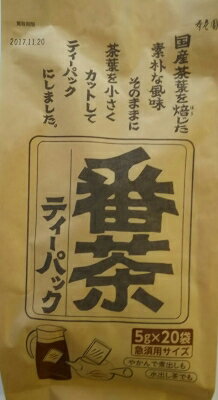 賞味期限
2017.11.20
国産茶葉を焙じた
素朴な風味
そのままに
茶葉を小さく
カットして
ティーパック
にしました。
番茶
ティーパック
5g×20袋
急須用サイズ
やかんで煮出しも
水出し茶でも